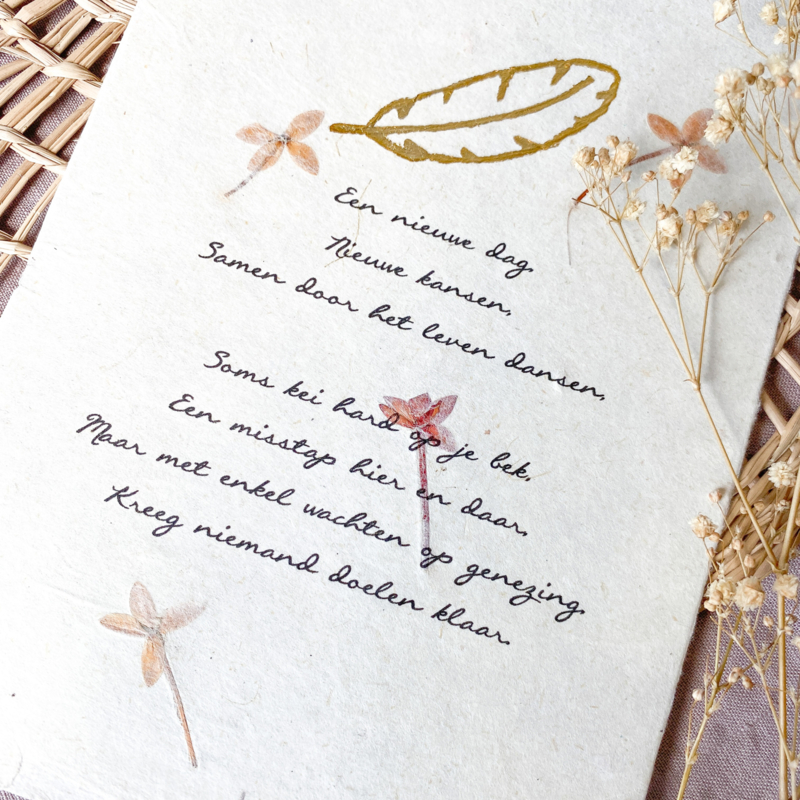 Een nieuwe dag
Nieuwe kansen,
Samen door het leven dansen,
Soms kei hard op je bek,
Een misstap hier en daar,
Maar met enkel wachten op genezing
Kreeg niemand doelen klaar.